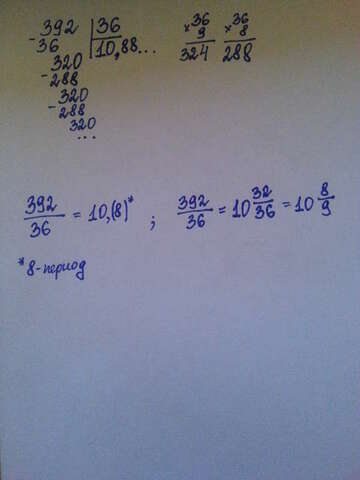 -392 | 36
36 | 10,88...
-320
288
-320
288
320
...
×36
9
324
×36
8
288
392/36 = 10,(8)* ; 392/36 = 10 32/36 = 10 8/9
*8-период